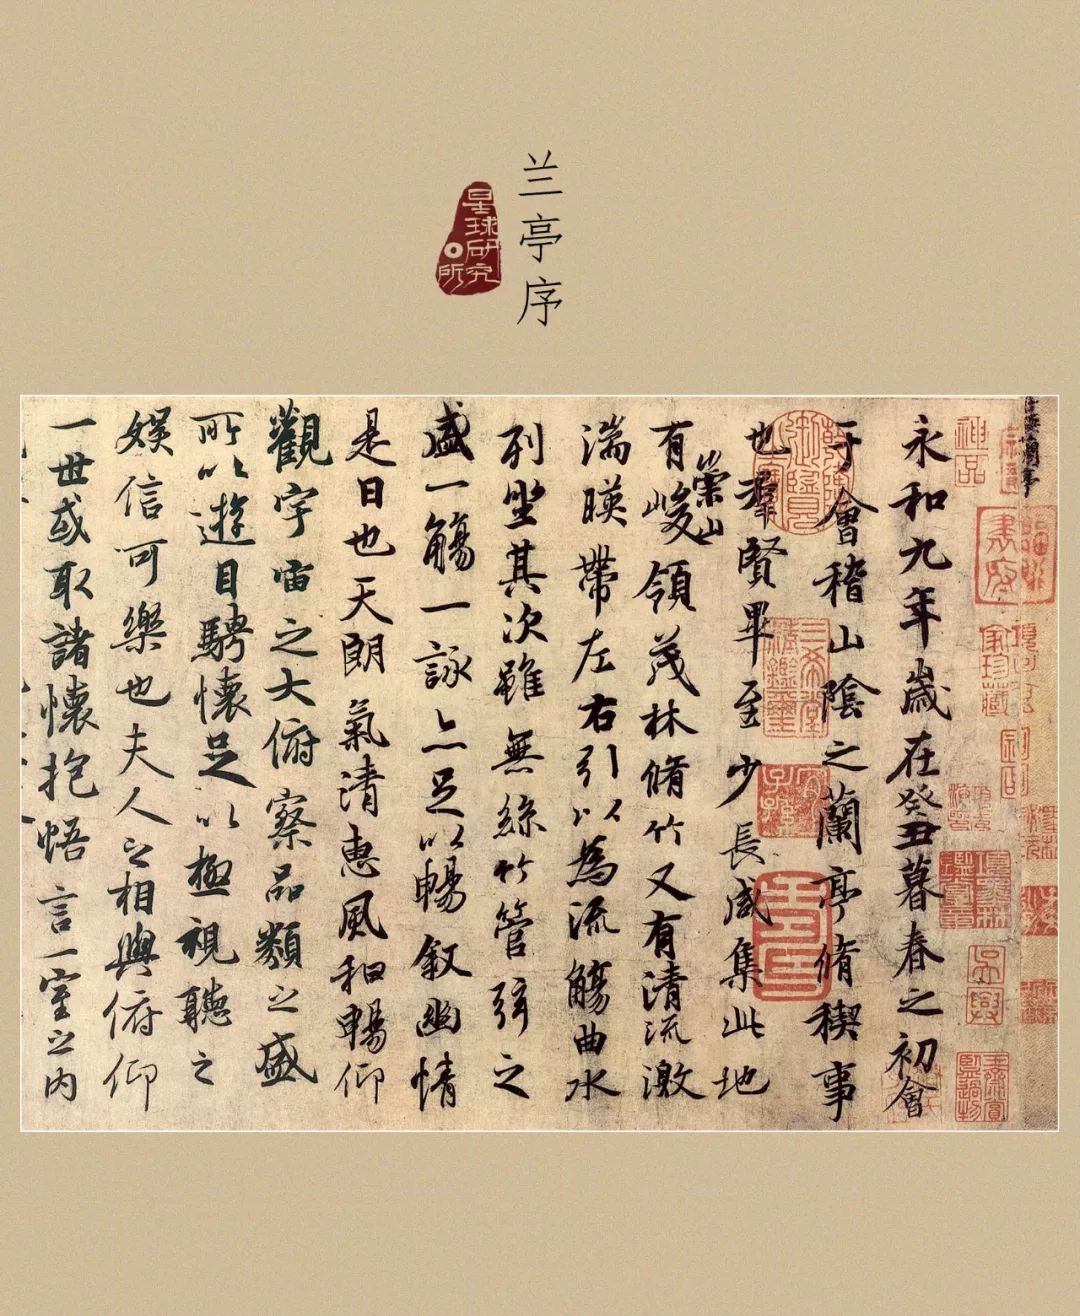 兰亭序
星球研究所
永和九年歲在癸丑暮春之初會
于會稽山陰之蘭亭脩稧事
也羣賢畢至少長咸集此地
有崇山峻領茂林脩竹又有清流激
湍暎帶左右引以為流觴曲水
列坐其次雖無絲竹管弦之
盛一觴一詠亦足以暢敘幽情
是日也天朗氣清惠風和暢仰
觀宇宙之大俯察品類之盛
所以遊目騁懷足以極視聽之
娛信可樂也夫人之相與俯仰
一世或取諸懷抱悟言一室之內
神品
三希堂精鑑璽